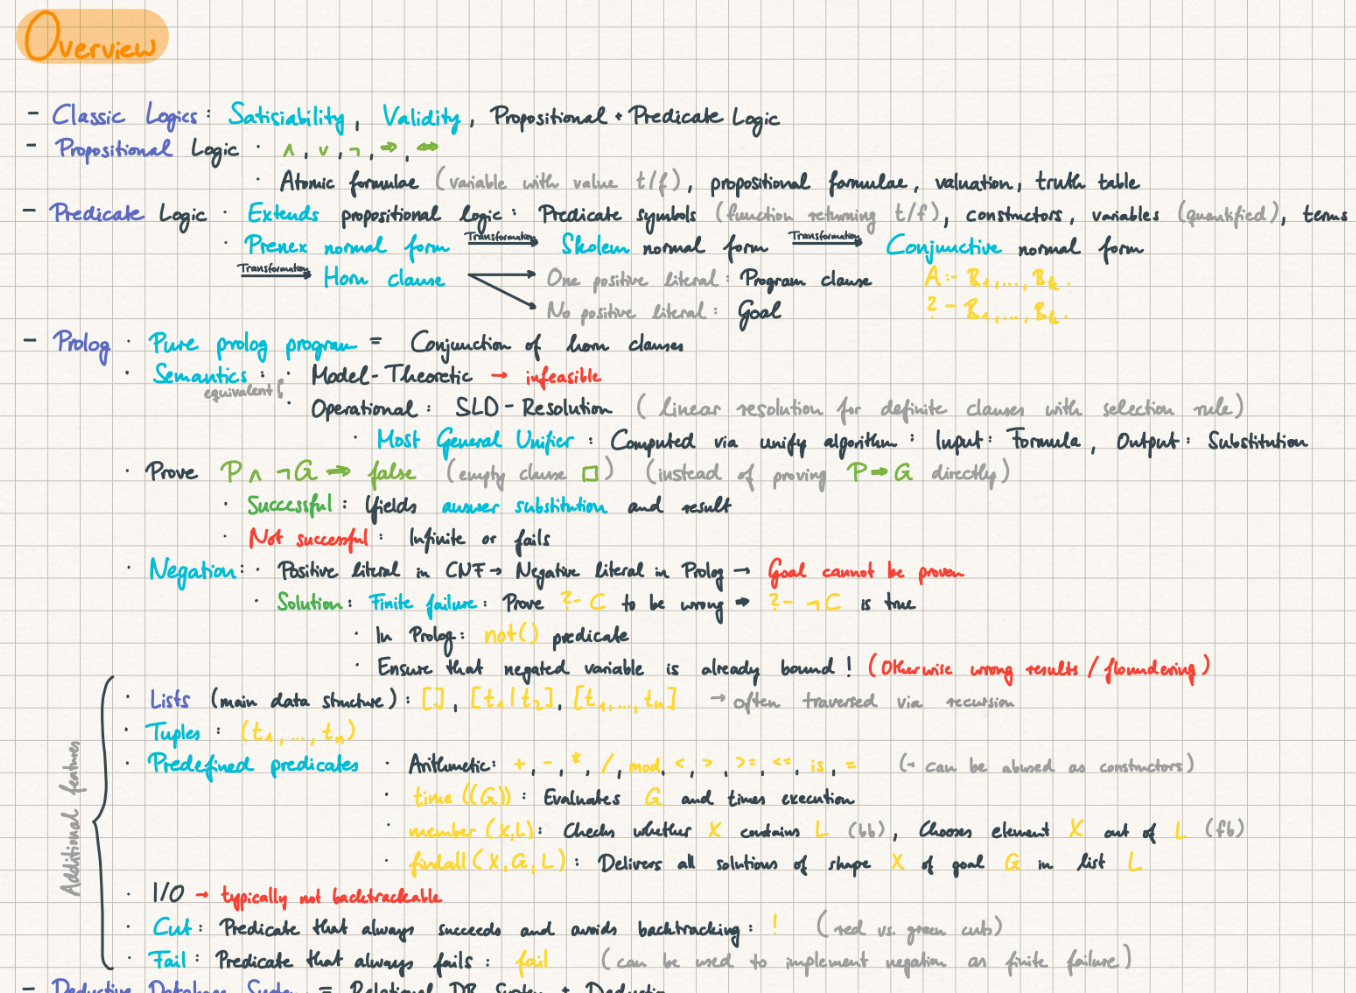 Overview
- Classic Logics: Satisiability, Validity, Propositional + Predicate Logic
- Propositional Logic · ∧, ∨, ¬, ⇒, ⇔
· Atomic formulae (variable with value t/f), propositional formulae, valuation, truth table
- Predicate Logic · Extends propositional logic: Predicate symbols (function returning t/f), constructors, variables (quantified), terms
· Prenex normal form Transformation→ Skolem normal form Transformation→ Conjunctive normal form
Transformation→ Horn clause → One positive literal: Program clause A :- B₁, ..., Bₖ.
→ No positive literal: Goal ?- B₁, ..., Bₖ.
- Prolog · Pure prolog program = Conjunction of horn clauses
· Semantics: · Model-Theoretic → infeasible
equivalent
· Operational: SLD-Resolution (linear resolution for definite clauses with selection rule)
· Most General Unifier: Computed via unify algorithm: Input: Formula, Output: Substitution
· Prove P ∧ ¬G ⇒ false (empty clause □) (instead of proving P ⇒ G directly)
· Successful: Yields answer substitution and result
· Not successful: Infinite or fails
· Negation: · Positive literal in CNF → Negative literal in Prolog → Goal cannot be proven
· Solution: Finite failure: Prove ?- C to be wrong ⇒ ?- ¬C is true
· In Prolog: not() predicate
· Ensure that negated variable is already bound! (Otherwise wrong results / floundering)
Additional features
· Lists (main data structure): [], [t₁|t₂], [t₁, ..., tₙ] → often traversed via recursion
· Tuples: (t₁, ..., tₙ)
· Predefined predicates · Arithmetic: +, -, *, /, mod, <, >, >=, <=, is, = (→ can be abused as constructors)
· time((G)): Evaluates G and times execution
· member(X,L): Checks whether X contains L (bb), Chooses element X out of L (fb)
· findall(X,G,L): Delivers all solutions of shape X of goal G in list L
· I/O → typically not backtrackable
· Cut: Predicate that always succeeds and avoids backtracking: ! (red vs. green cuts)
· Fail: Predicate that always fails: fail (can be used to implement negation as finite failure)
- Deductive Database System = Relational DB System + Deduction